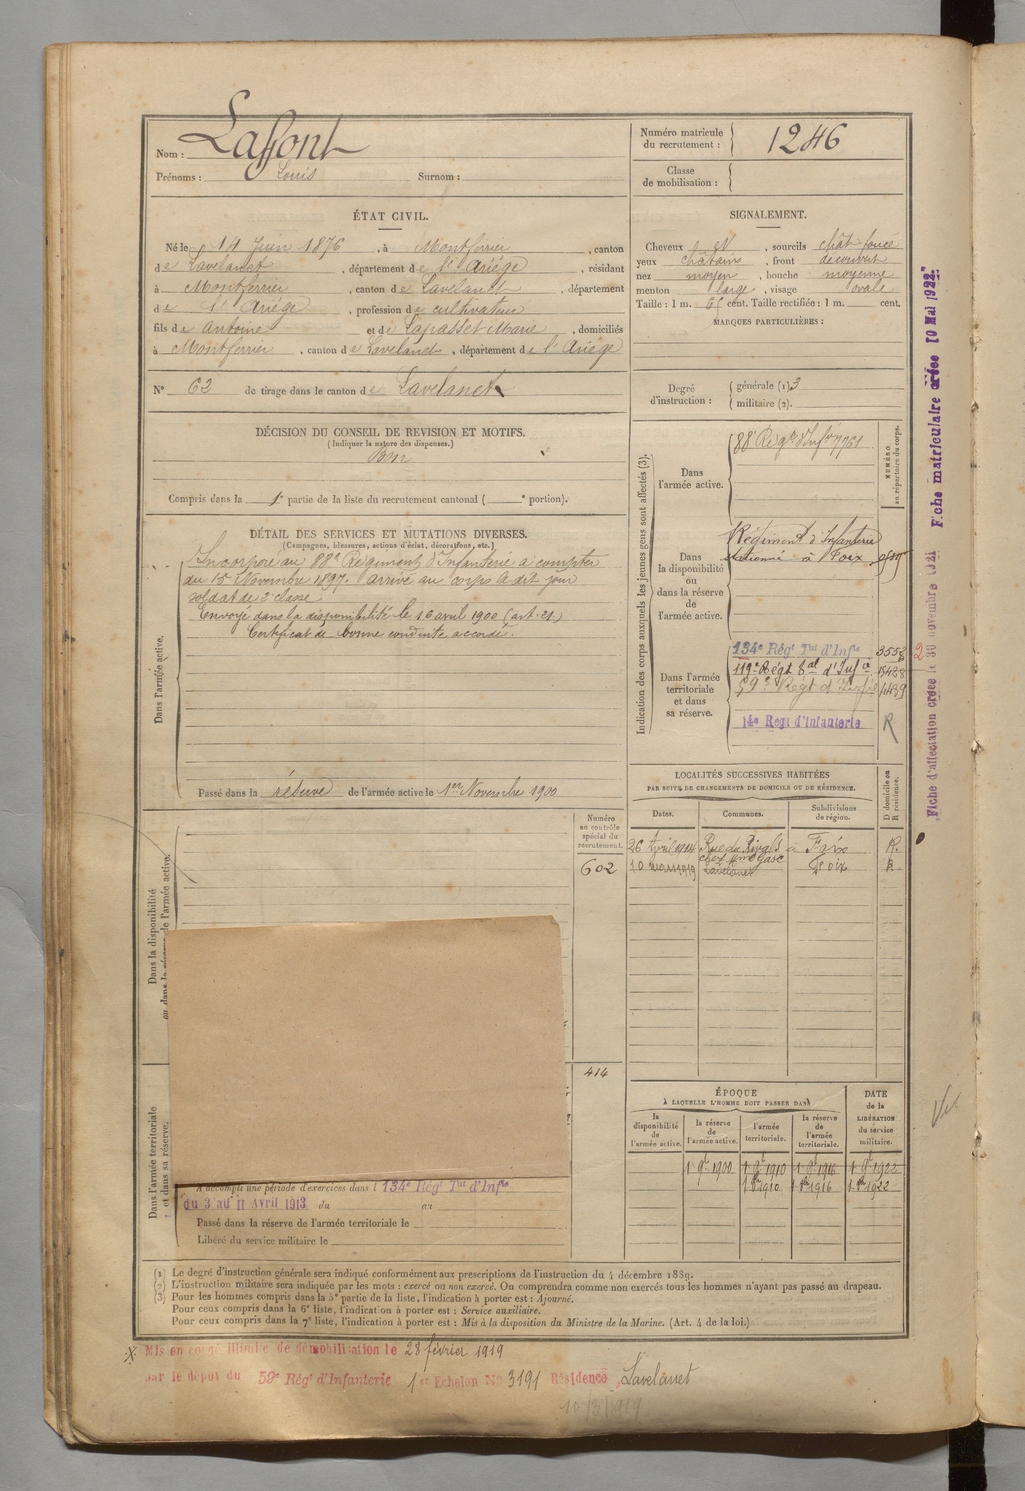 Nom : Laffont
Prénoms : Louis Surnom :
Numéro matricule du recrutement : 1246
Classe de mobilisation :
ÉTAT CIVIL.
Né le 14 Juin 1876, à Montferrier, canton
de Lavelanet, département de l'Ariége, résidant
à Montferrier, canton de Lavelanet, département
de l'Ariége, profession de cultivateur
fils de Antoine et de Lapasset Marie, domiciliés
à Montferrier, canton de Lavelanet, département de l'Ariége
N° 62 de tirage dans le canton de Lavelanet
SIGNALEMENT.
Cheveux et, sourcils chât foncé
yeux châtains, front découvert
nez moyen, bouche moyenne
menton large, visage ovale
Taille : 1 m. 65 cent. Taille rectifiée : 1 m. cent.
MARQUES PARTICULIÈRES :
Degré d'instruction : générale (1) 3
militaire (2).
DÉCISION DU CONSEIL DE REVISION ET MOTIFS.
(Indiquer la nature des dispenses.)
Bon
Compris dans la 1e partie de la liste du recrutement cantonal ( e portion).
DÉTAIL DES SERVICES ET MUTATIONS DIVERSES.
(Campagnes, blessures, actions d'éclat, décorations, etc.)
Dans l'armée active.
Incorporé au 88e Régiment d'Infanterie a compter
du 15 Novembre 1897. arrivé au corps le dit jour
soldat de 2e classe.
Envoyé dans la disponibilité le 16 avril 1900 (art. 21.)
Certificat de bonne conduite accordé.
Passé dans la réserve de l'armée active le 1er Novembre 1900
Indication des corps auxquels les jeunes gens sont affectés (3).
NUMÉRO au répertoire du corps.
Dans l'armée active.
88e Régt d'Infie 7761
Dans la disponibilité ou dans la réserve de l'armée active.
Régiment d'Infanterie
stationné à Foix
Dans l'armée territoriale et dans sa réserve.
134e Régt Tal d'Infie 3553
119e Régt Tal d'Infie 15428
59e Régt d'Infie 4439
14e Regt d'Infanterie R
2
LOCALITÉS SUCCESSIVES HABITÉES
PAR SUITE DE CHANGEMENTS DE DOMICILE OU DE RÉSIDENCE.
D domicile ou R résidence.
Dates. Communes. Subdivisions de région.
26 Avril 1914 Rue du Rival à Foix R.
chez Mme Gasc
10 mars 1919 Lavelanet Foix R
Dans la disponibilité ou dans la réserve de l'armée active.
Numéro au contrôle spécial du recrutement.
602
414
Dans l'armée territoriale et dans sa réserve.
A accompli une période d'exercices dans l 134e Régt Tal d'Infie
du 3 au 11 Avril 1913 du au
Passé dans la réserve de l'armée territoriale le
Libéré du service militaire le
ÉPOQUE
À LAQUELLE L'HOMME DOIT PASSER DANS
la disponibilité de l'armée active.
la réserve de l'armée active.
l'armée territoriale.
la réserve de l'armée territoriale.
DATE de la LIBÉRATION du service militaire.
1 9e 1900 1 9e 1910 1 9e 1916 1 9e 1922
1 8e 1910 1 8e 1916 1 8e 1922
(1) Le degré d'instruction générale sera indiqué conformément aux prescriptions de l'instruction du 4 décembre 1889.
(2) L'instruction militaire sera indiquée par les mots : exercé ou non exercé. On comprendra comme non exercés tous les hommes n'ayant pas passé au drapeau.
(3) Pour les hommes compris dans la 5e partie de la liste, l'indication à porter est : Ajourné.
Pour ceux compris dans la 6e liste, l'indication à porter est : Service auxiliaire.
Pour ceux compris dans la 7e liste, l'indication à porter est : Mis à la disposition du Ministre de la Marine. (Art. 4 de la loi.)
Mis en congé illimité de démobilisation le 28 février 1919
par le dépot du 59e Régt d'Infanterie 1er Echelon No 3191 Résidence Lavelanet
10/3/1919
Fiche d'affectation créée le 30 novembre 1921 Fiche matriculaire créée 10 Mai 1922.